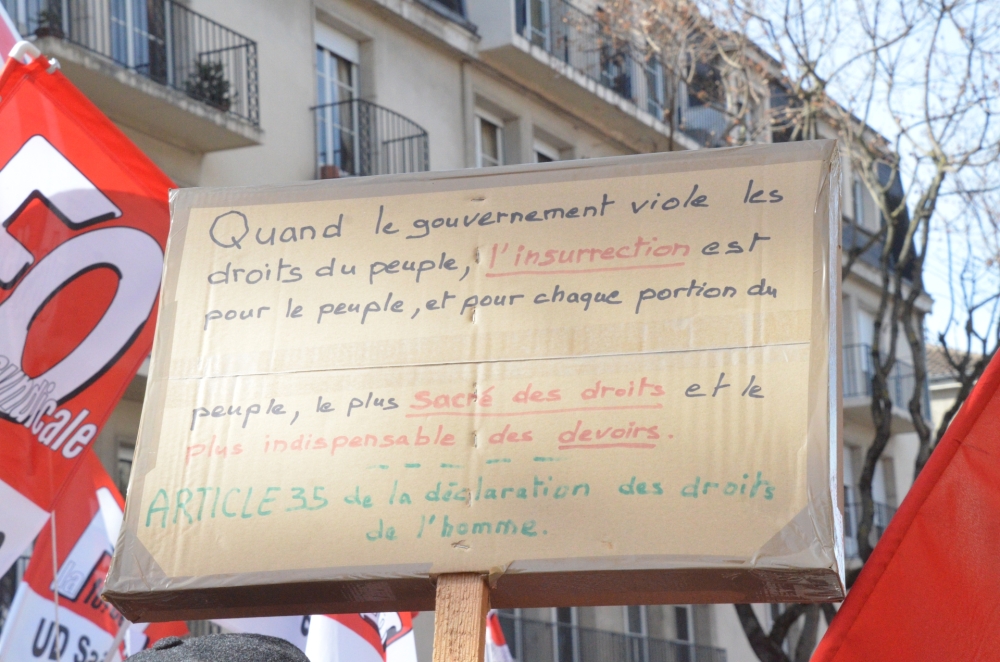 Quand le gouvernement viole les
droits du peuple, l'insurrection est
pour le peuple, et pour chaque portion du
peuple, le plus sacré des droits et le
plus indispensable des devoirs.
ARTICLE 35 de la déclaration des droits
de l'homme.
FO
syndicale
la
UD